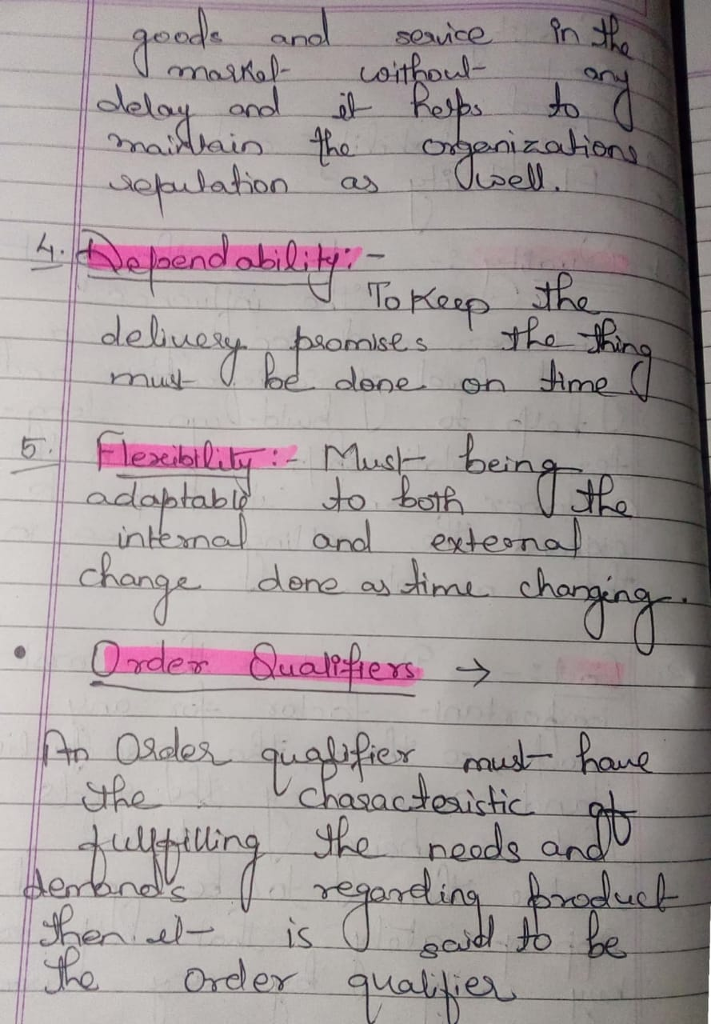 goods and service in the
market without any
delay and it helps to
maintain the organizations
reputation as well.
4. Dependability:-
To Keep the
delivery promises the thing
must be done on time
5. Flexibility:- Must being
adaptable to both the
internal and external
change done as time changing.
• Order Qualifiers →
An Order qualifier must have
the characteristic of
fullfilling the needs and
demands regarding product
then it is said to be
the order qualifier